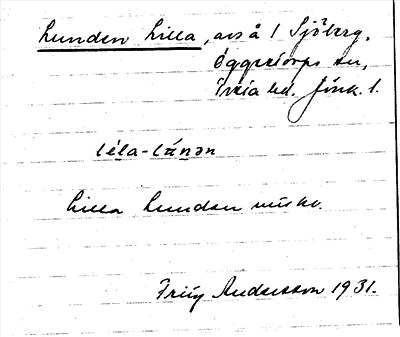 Lunden Lilla, avs å 1 Sjöberg,
Öggestorps sn,
Tveta hd. Jönk. l.
léla-lánən
Lilla Lunden
Andersson 1931.